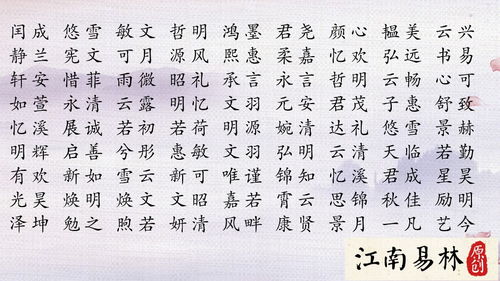 闰成 悠雪 敏文 哲明 鸿墨 君尧 颜心 韫美 云兴
静兰 宪文 可月 源风 熙惠 柔嘉 忆欢 弘远 书易
轩安 惜菲 雨微 昭礼 承言 永言 哲明 云畅 心可
如萱 永清 云露 明忆 文羽 元安 君茂 子惠 舒致
忆溪 展诚 若初 若荷 明源 婉清 达礼 悠雪 景赫
明辉 启善 兮彤 惠敏 文羽 弘明 云清 天临 若勤
有欢 新如 雪云 新可 唯谨 锦云 忆溪 君成 星昊
光昊 焕明 焕文 文昭 嘉若 霄云 思锦 秋佳 励明
泽坤 勉之 煦若 妍清 风畔 康贤 景月 一凡 艺今
江南易林 原创